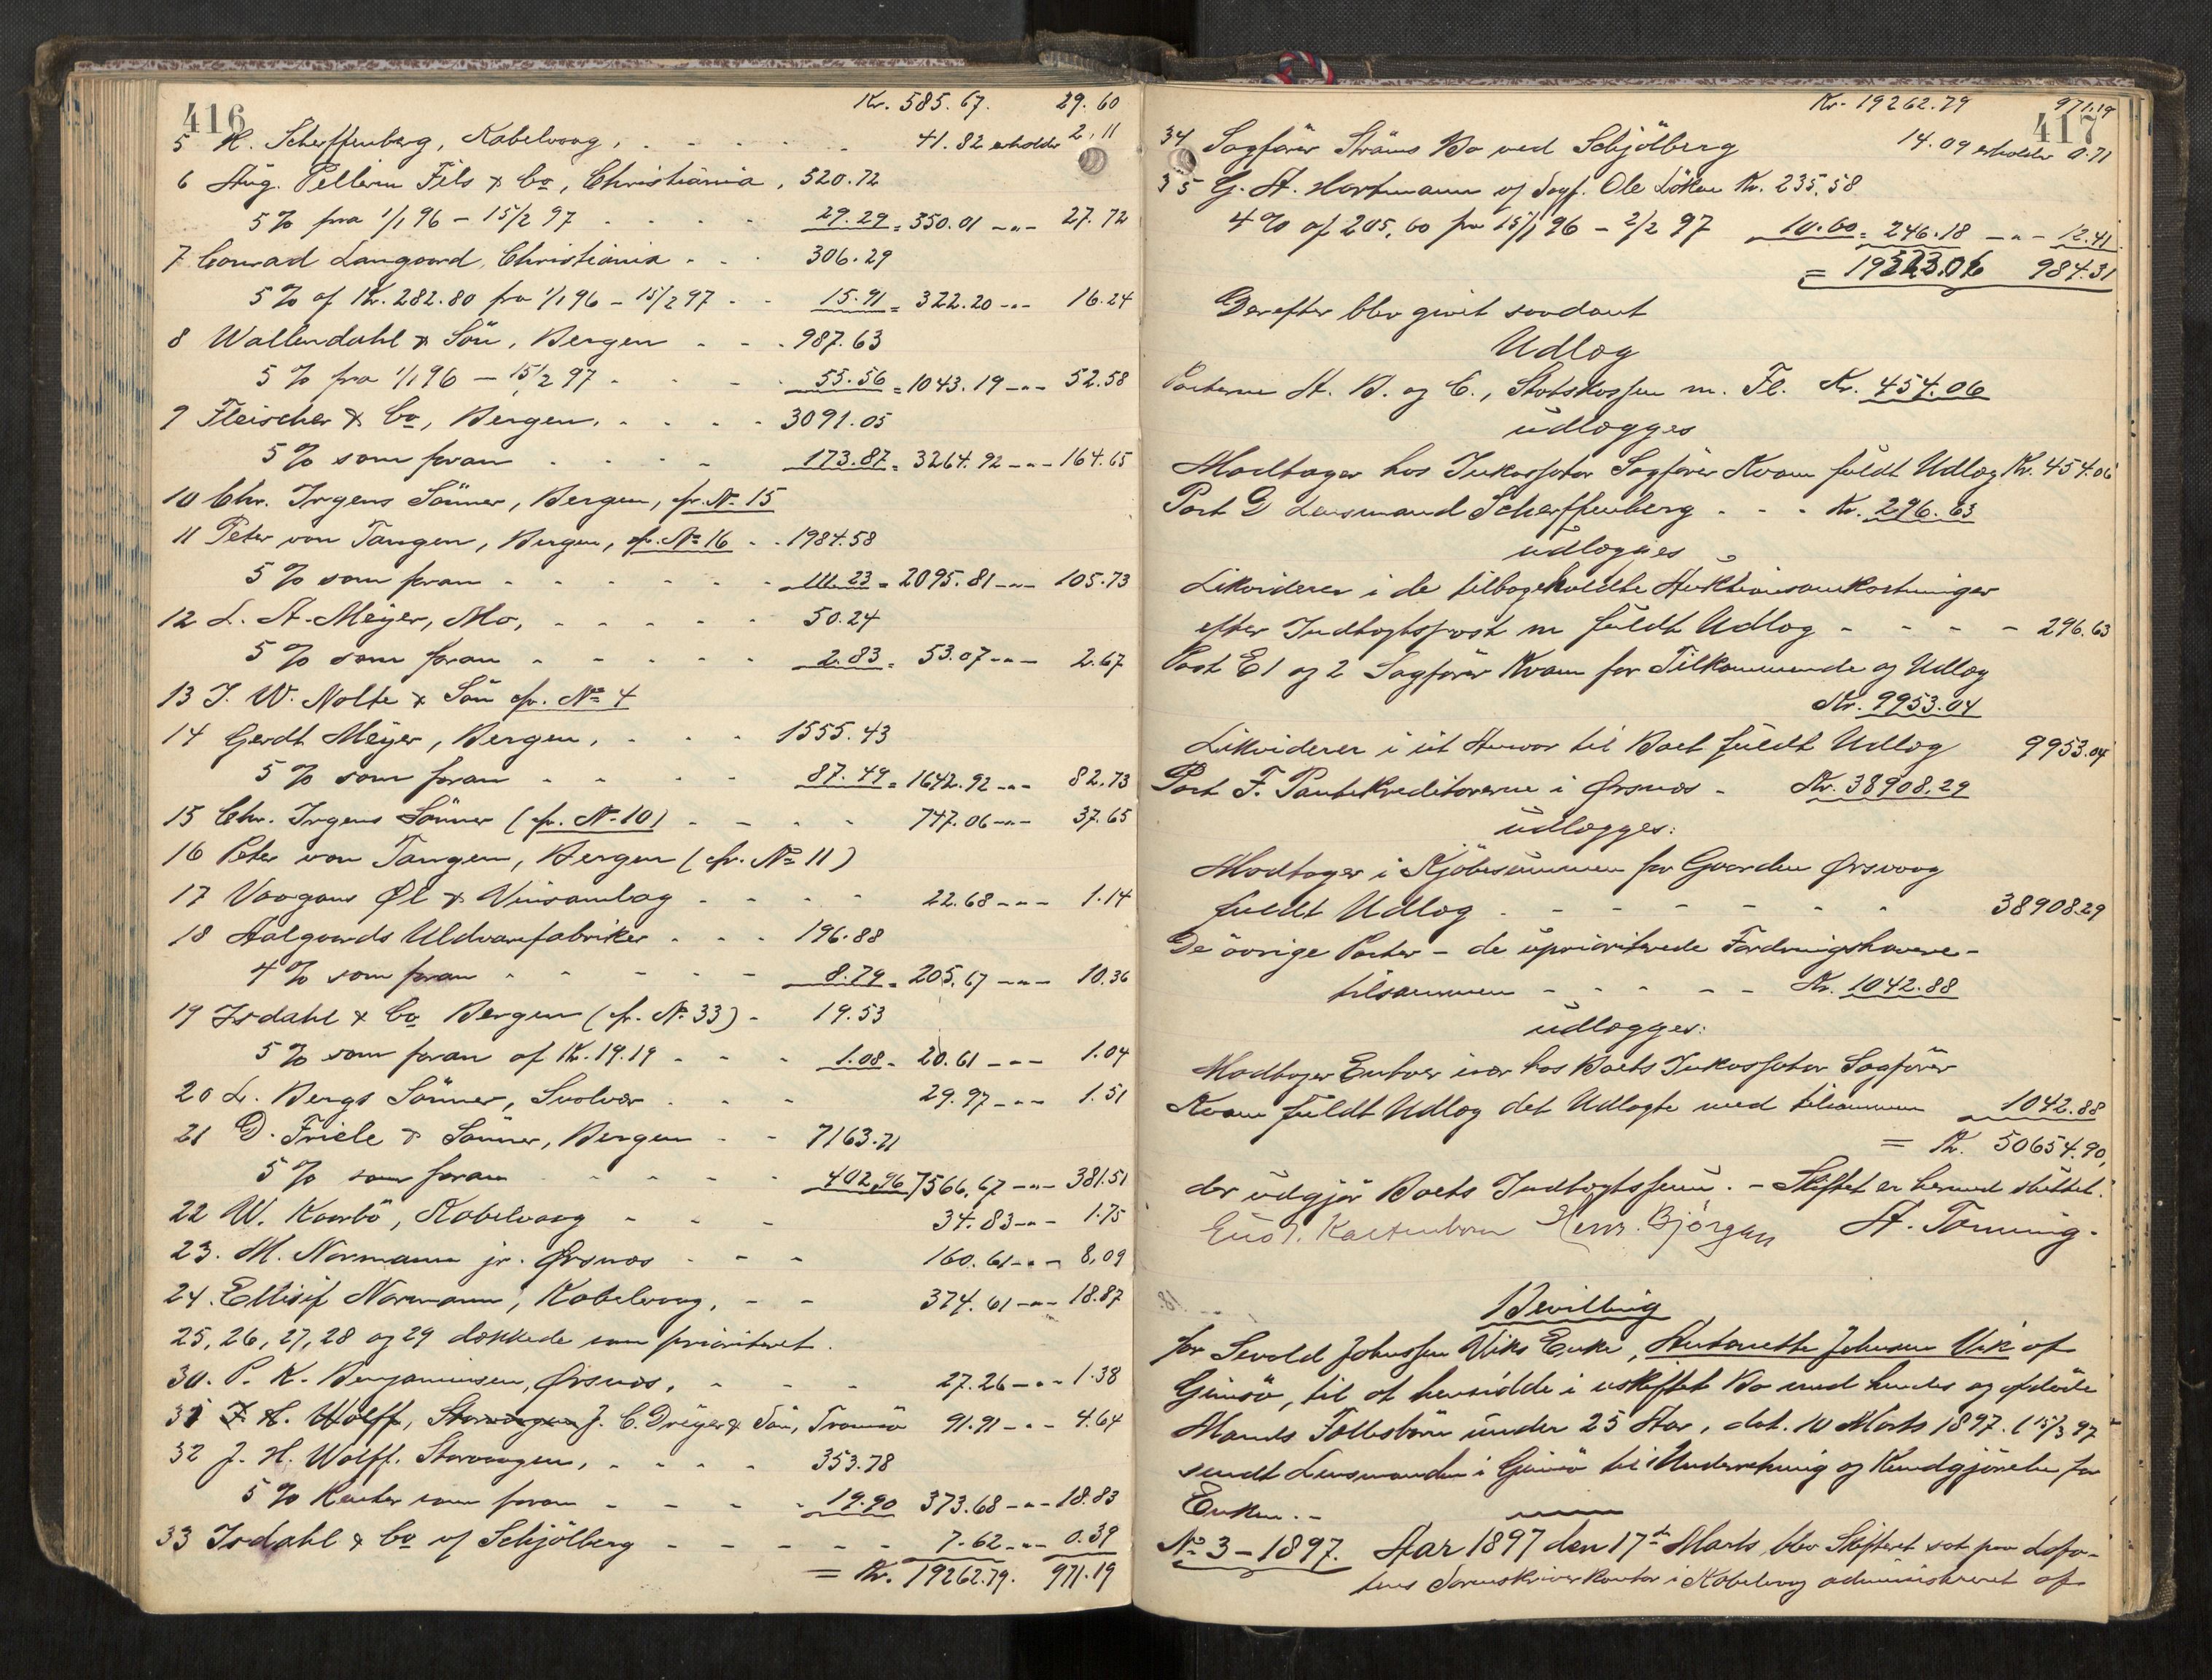 416
Kr. 585.67. 29.60
5 H. Scherffenberg, Kabelvaag, - - - - 41.82 erholder 2,11
6 Aug. Pellerin Fils & Co, Christiania, 520.72
5 % fra 1/1 96 - 15/2 97 - - - 29.29 = 350.01 -"- 27.72
7 Conrad Langaard, Christiania - - - 306.29
5 % af Kr. 282.80 fra 1/1 96 - 15/2 97 - - 15.91 = 322.20 -"- 16.24
8 Wallendahl & Sön, Bergen - - - 987.63
5 % fra 1/1 96 - 15/2 97 - - - 55.56 = 1043.19 -"- 52.58
9 Fleischer & Co, Bergen, - - - - 3091.05
5 % som foran - - - - 173.87 = 3264.92 -"- 164.65
10 Chr. Irgens Sönner, Bergen, cfr. No 15
11 Peter von Tangen, Bergen, cfr. No 16 - - 1984.58
5 % som foran - - - - - - 111.23 = 2095.81 -"- 105.73
12 L. A. Meyer, Mo, - - - - - 50.24
5 % som foran - - - - - 2.83 = 53.07 -"- 2.67
13 J. W. Nolte & Sön cfr. No 4
14 Gerdt Meyer, Bergen, - - - 1555.43
5 % som foran - - - - 87.49 = 1642.92 -"- 82.73
15 Chr. Irgens Sönner (cfr. No 10) - - - - 747.06 -"- 37.65
16 Peter von Tangen, Bergen (cfr. No 11)
17 Vaagans Øl & Vinsamlag - - - - 22.68 -"- 1.14
18 Aalgaards Uldvarefabriker - - - 196.88
4 % som foran - - - - - 8.79 = 205.67 -"- 10.36
19 Isdahl & Co Bergen (cfr. No 33) - 19.53
5 % som foran af Kr. 19.19 - - - 1.08 - 20.61 -"- 1.04
20 L. Bergs Sönner, Svolvær - - - 29.97 -"- 1.51
21 D. Friele & Sönner, Bergen - - 7163.71
5 % som foran - - - - - 402.96 7566,67 -"- 381.51
22 W. Kaarbö, Kabelvaag - - - 34.83 -"- 1.75
23. M. Normann jr. Ørsnæs - - - 160.61 -"- 8,09
24. Ellisif Normann, Kabelvaag, - - 374.61 -"- 18.87
25, 26, 27, 28 og 29 dækkede som prioriteret.
30. P. K. Benjaminsen, Ørsnæs, - - - 27.26 -"- 1.38
31 J. H. Wolff, Storvaagen J. C. Dreyer & Sön, Tromsö 91.91 -"- 4.64
32 J. H. Wolff. Storvaagen, - - - - 353.78
5 % Renter som foran - - - - 19.90 373.68 -"- 18.83
33 Isdahl & Co v/ Schjölberg - - - - - 7.62 -"- 0.39
= Kr. 19262.79. 971.19
417
Kr. 19262.79 971.19
34 Sagförer Ströms Bo ved Schjölberg 14.09 erholder 0.71
35 G. A. Hartmann v/ Sagf. Ole Löken Kr. 235.58
4 % af 205.60 fra 15/1 96 - 2/2 97 10.60 = 246.18 -"- 12.41
= 19523.06 984.31
Derefter blev givet saadant
Udlæg
Posterne A. B. og C., Statskassen m. Fl. Kr. 454.06
udlægges
Modtager hos Inkassator Sagförer Kvam fuldt Udlæg Kr. 454.06
Post D Lensmand Scherffenberg - - - Kr. 296.63
udlægges
Likviderer i de tilbageholdte Auktionsomkostninger
efter Indtægtspost m fuldt Udlæg - - - - 296.63
Post E 1 og 2 Sagförer Kvam for Tilkommende og Udlæg
Kr. 9953.04
Likviderer i sit Ansvar til Boet fuldt Udlæg 9953.04
Post F. Pantekreditorerne i Ørsnæs - Kr. 38908.29
udlægges:
Modtager i Kjöbesummen for Gaarden Ørsvaag
fuldt Udlæg - - - - - - - 38908.29
De övrige Poster - de uprioriterede Fordringshavere -
tilsammen - - - - - Kr. 1042.88
udlægges:
Modtager Enhver især hos Boets Inkassator Sagförer
Kvam fuldt Udlæg det Udlagte med tilsammen 1042.88
= Kr. 50654.90,
der udgjör Boets Indtægtssum. - Skiftet er hermed sluttet.
Henr. Bjørgan A. Tonning.
Bevilling
for Sevald Johnssen Viks Enke, Antonette Johnsen Vik af
Gimsö, til at hensidde i uskiftet Bo med hendes og afdöde
Mands Fællesbörn under 25 Aar, dat. 10 Marts 1897. (15/3 97
sendt Lensmanden i Gimsö til Underretning og Kundgjörelse for
Enken. -
No 3 - 1897. Aar 1897 den 17de Marts blev Skifteret sat paa Lofo-
tens Sorenskriverkontor i Kabelvaag administreret af